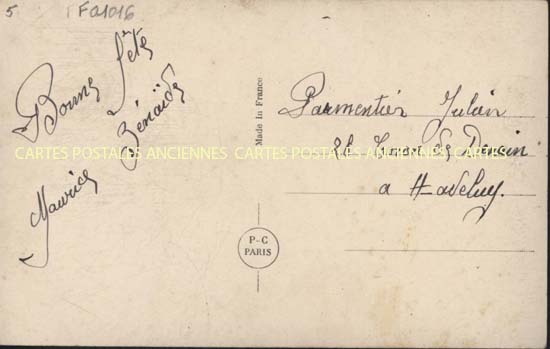 5 FQ1016
Bonne fête
Zénaïde
Maurice
Made in France
P-C
PARIS
CARTES POSTALES ANCIENNES CARTES POSTALES ANCIENNES
Parmentier Julien
de Denain
a Haveluy.